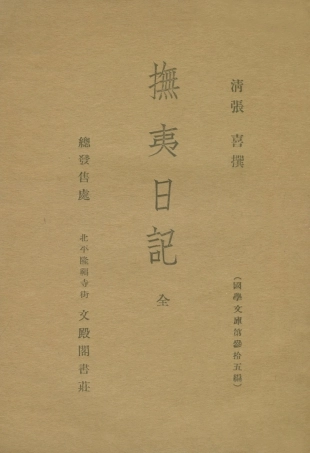 清張喜撰
(國學文庫第叄拾五編)
撫夷日記 全
總發售處 北平隆福寺街 文殿閣書莊